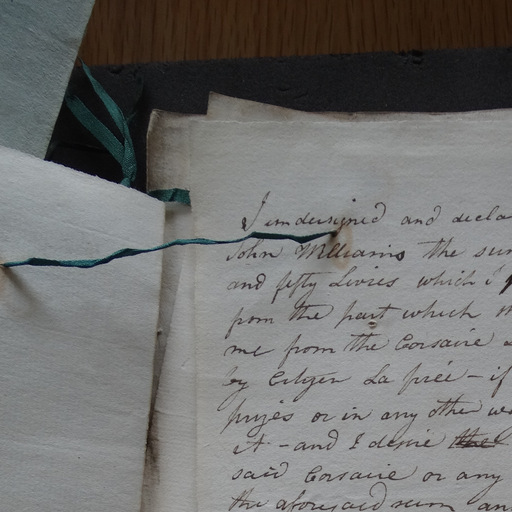 I undersigned and decla
John Williams the sum
and fifty Livres which I
from the part which
me from the Corsaire
by Citizen La free - if
prizes or in any other
it - and I desire the
said Corsaire or any
the aforesaid sum an